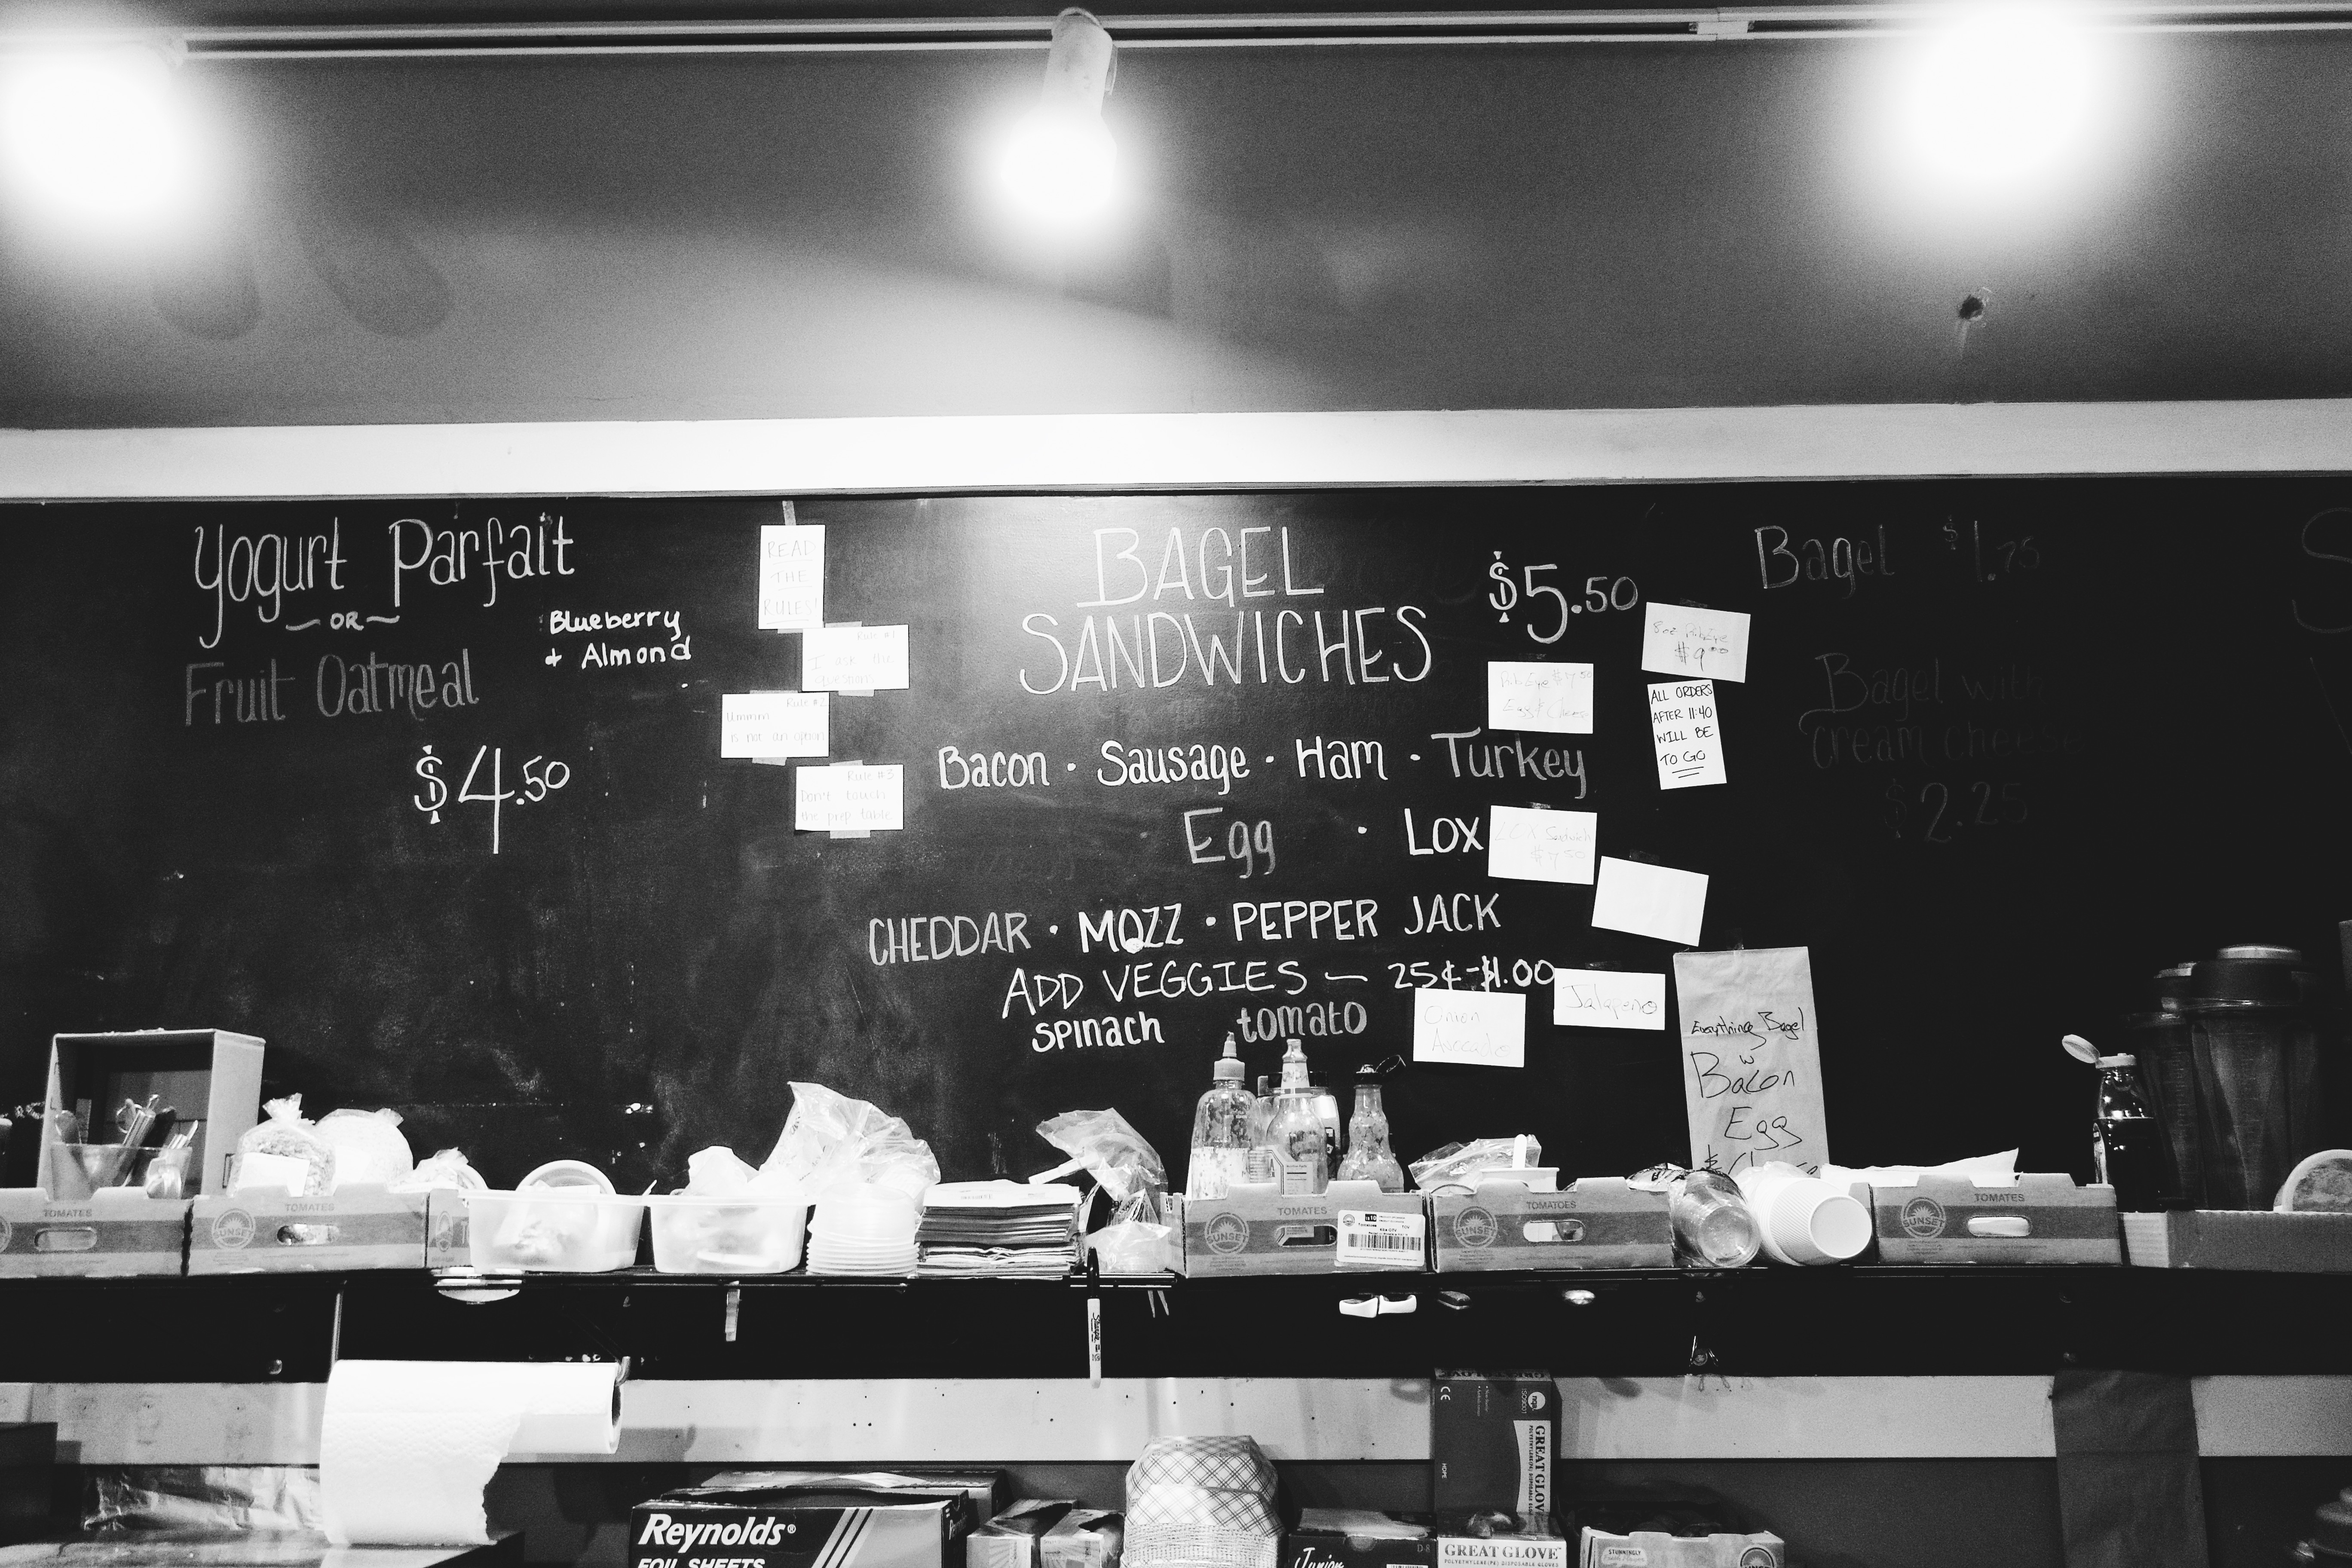 Yogurt Parfait
~ OR ~
Fruit Oatmeal
Blueberry
+ Almond
$4.50
READ
THE
RULES!
Rule #1
I ask the
questions
Rule #2
Ummm
is not an option
Rule #3
Don't touch
the prep table
BAGEL
SANDWICHES
$5.50
Bacon · Sausage · Ham · Turkey
Egg · Lox
CHEDDAR · MOZZ · PEPPER JACK
ADD VEGGIES — 25¢-$1.00
spinach tomato
Onion
Avocado
Jalapeno
8oz RibEye
$9.00
RibEye
Egg
ALL ORDERS
AFTER 11:40
WILL BE
TO GO
LOX Sandwich
$7.50
Everything Bagel
w
Bacon
Egg
Bagel $1.75
Bagel with
cream cheese
$2.25
TOMATES
SUNSET
TOMATES
SUNSET
TOMATES
SUNSET
TOMATOES
SUNSET
TOMATES
SUNSET
Reynolds®
FOIL SHEETS
GREAT GLOVE
CE
HDPE
Junior
GREAT GLOVE
STUNNINGLY